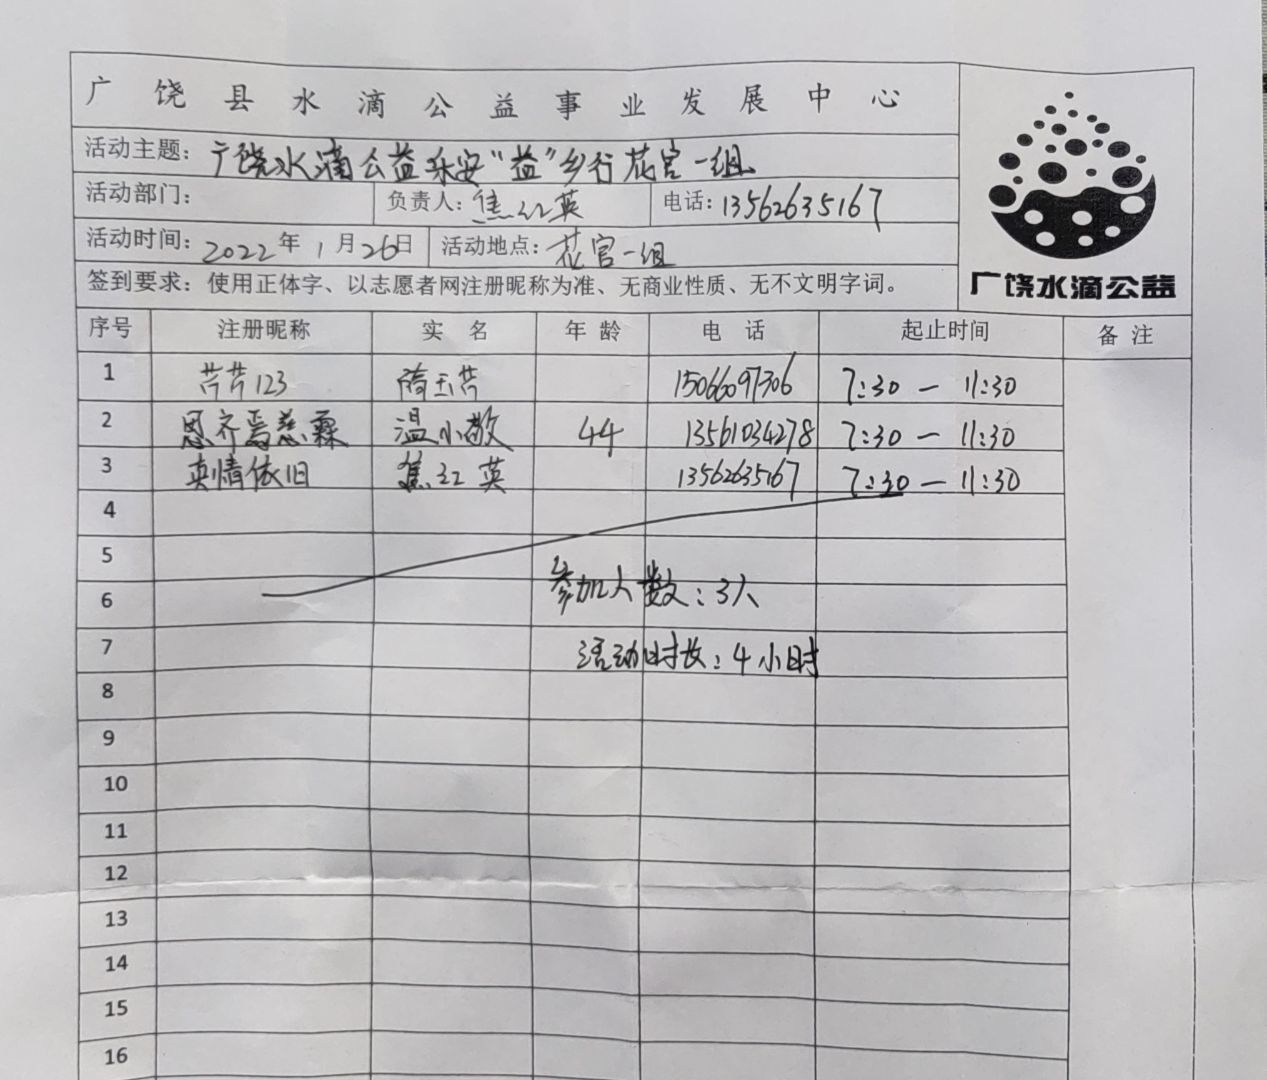 广饶县水滴公益事业发展中心
活动主题：广饶水滴公益乐安“益”乡行花官一组
活动部门： 负责人：焦红英 电话：13562635167
活动时间：2022年1月26日 活动地点：花官一组
签到要求：使用正体字、以志愿者网注册昵称为准、无商业性质、无不文明字词。
广饶水滴公益
序号 注册昵称 实名 年龄 电话 起止时间 备注
1 芹芹123 隋玉芹 15066097306 7:30—11:30
2 恩齐焉慈霖 温小敬 44 13561034278 7:30—11:30
3 真情依旧 焦红英 13562635167 7:30—11:30
4
5
6 参加人数：3人
7 活动时长：4小时
8
9
10
11
12
13
14
15
16